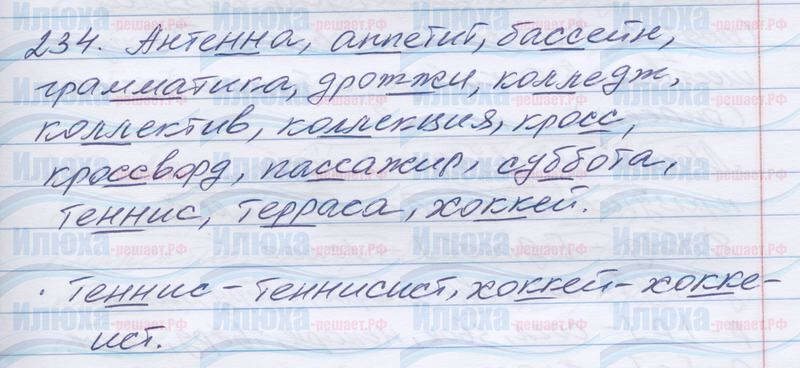 234. Антенна, аппетит, бассейн,
грамматика, дрожжи, колледж,
коллектив, коллекция, кросс,
кроссворд, пассажир, суббота,
теннис, терраса, хоккей.
· Теннис – теннисист, хоккей – хокке-
ист.